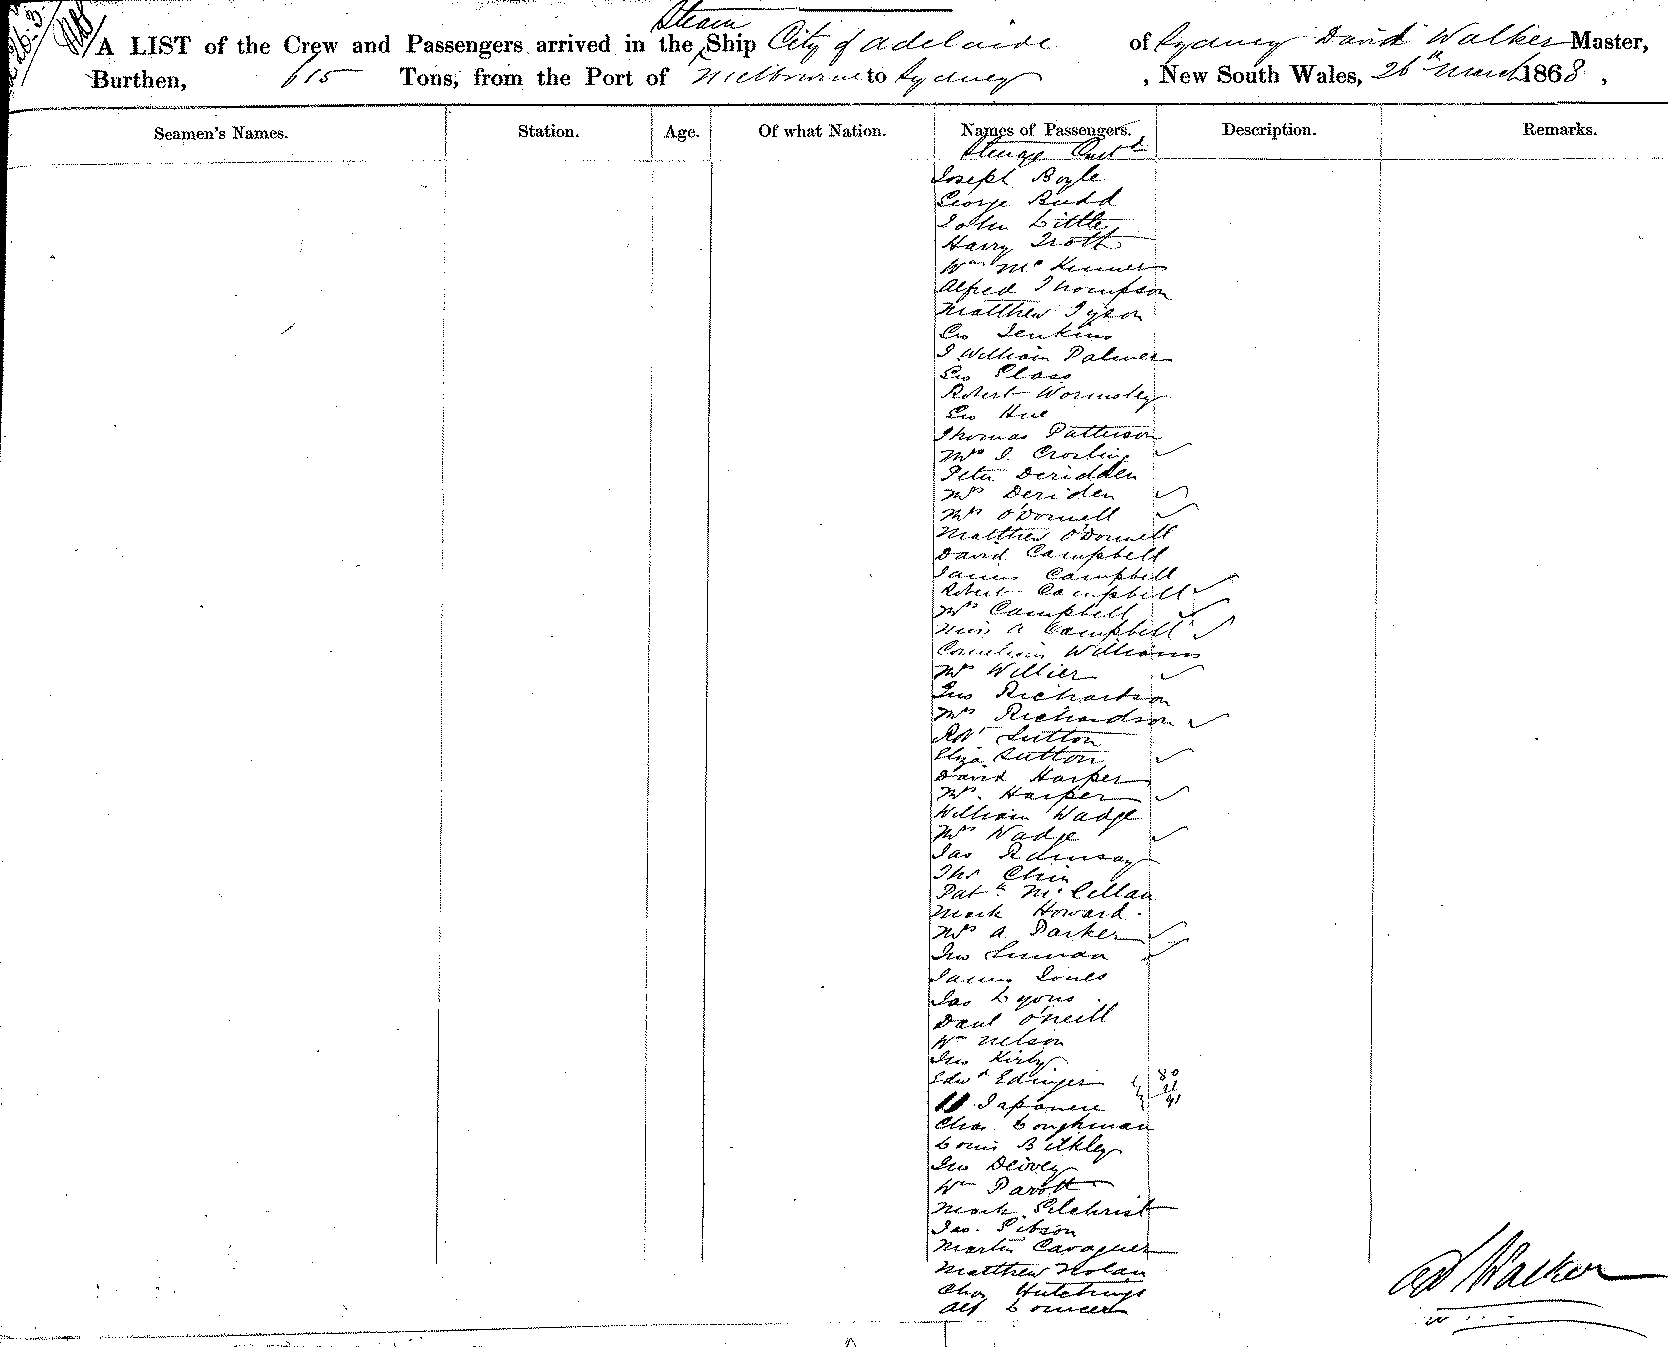 Steam
A LIST of the Crew and Passengers arrived in the Ship City of Adelaide of Sydney David Walker Master,
Burthen, 615 Tons, from the Port of Melbourne to Sydney, New South Wales, 26th March 1868,
Seamen's Names. Station. Age. Of what Nation. Names of Passengers. Description. Remarks.
Steerage Contd
Joseph Boyle
George Rudd
John Little
Harry Trott
Wm Mc
Alfred Thompson
Matthew Tyson
Geo Jenkins
J William Palmer
Geo
Robert Wormsley
Geo
Thomas Patterson
Mrs J.
Peter Deridden
Mrs Deriden
Mrs O'Donnell
Matthew O'Donnell
David Campbell
James Campbell
Robert Campbell
Mrs Campbell
Miss A Campbell
Cornelius Williams
Mrs Willier
Jno Richardson
Mrs Richardson
Robt Sutton
Eliza Sutton
David Harper
Mrs. Harper
William Wadge
Mrs Wadge
Jas Ramsay
Thos
Patk McCellan
Mark Howard.
Mrs A Parker
Jno
James Jones
Jas Lyons
Danl O'Neill
Wm Nelson
Jno Kirby
Edwd Edinger 80
11 Japanese 91
Chas Loughman
Louis
Jno
Wm Parott
Mark Gilchrist
Jas. Gibson
Martin
Matthew Nolan
Chas Hutchings
Alf
D Walker